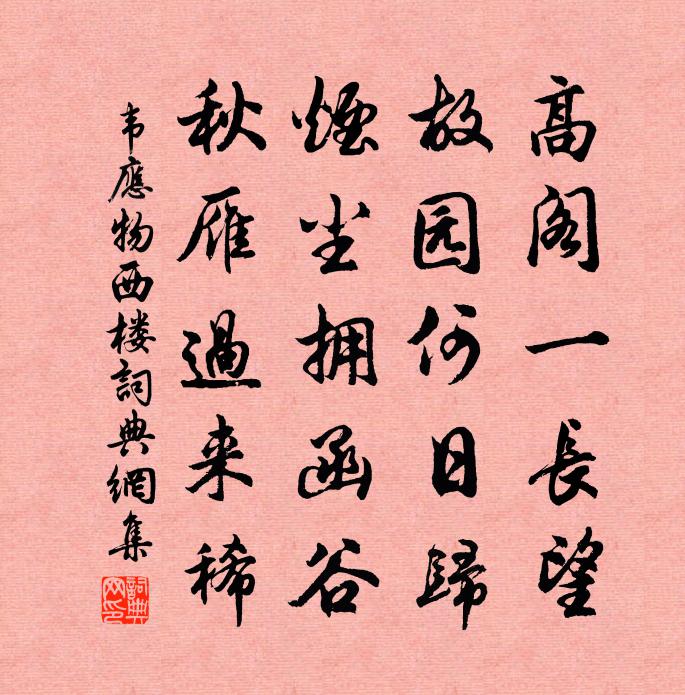 高阁一長望
故园何日歸
煙尘拥函谷
秋雁過来稀
韦應物西楼詞典網集
詞典网印